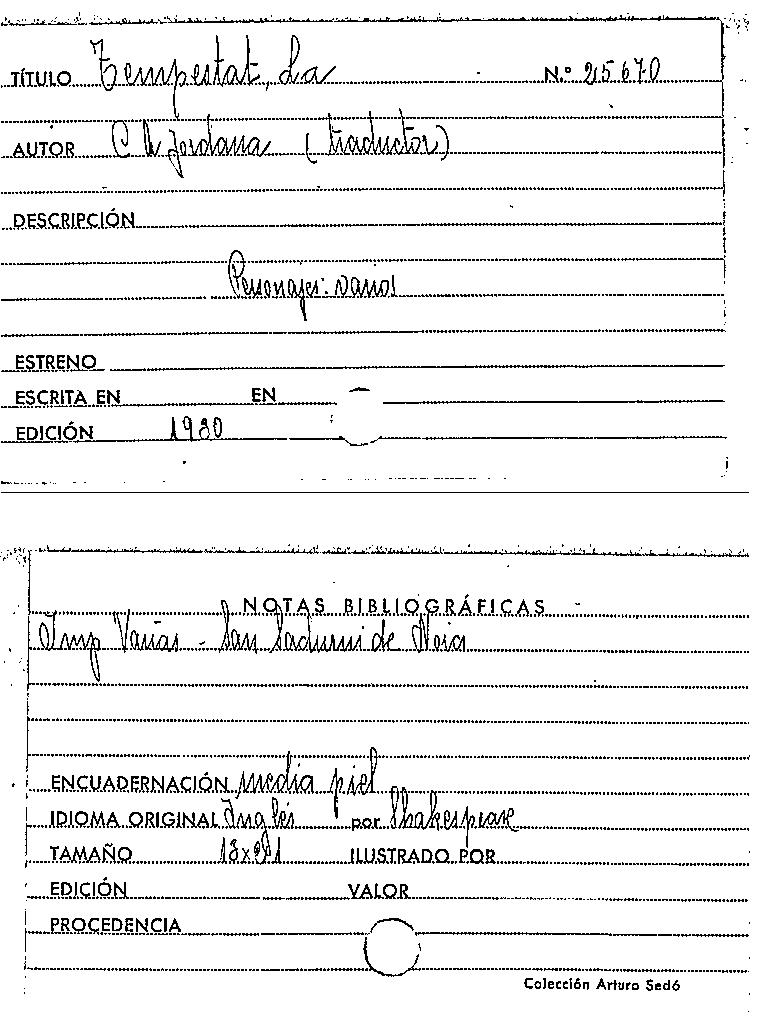 TÍTULO Tempestat, La N.º 25670
AUTOR C A Jordana (traductor)
DESCRIPCIÓN
Personajes: varios
ESTRENO
ESCRITA EN EN
EDICIÓN 1930
NOTAS BIBLIOGRÁFICAS
Imp Varias - San Sadurni de Noia
ENCUADERNACIÓN media piel
IDIOMA ORIGINAL Inglés por Shakespeare
TAMAÑO ILUSTRADO POR
EDICIÓN VALOR
PROCEDENCIA
Colección Arturo Sedó